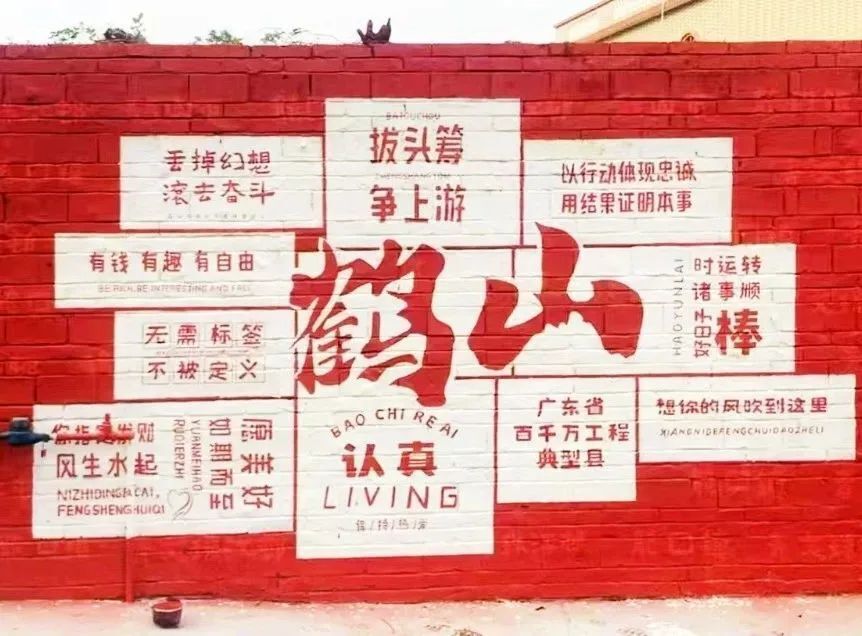 BATOUCHOU
拔头筹
ZHENGSHANGYOU
争上游
丢掉幻想
滚去奋斗
以行动体现忠诚
用结果证明本事
有钱 有趣 有自由
BE RICH, BE INTERESTING AND FREE
鹤山
HAOYUNLAI
时运转
诸事顺
好日子
棒
无需标签
不被定义
你指定发财
风生水起
NIZHIDINGFACAI,
FENGSHENGHUIQI
YUANMEIHAO
RUQIERZHI
愿美好
如期而至
BAO CHI RE AI
认真
LIVING
保/持/热/爱
广东省
百千万工程
典型县
想你的风吹到这里
XIANGNIDEFENGCHUIDAOZHELI